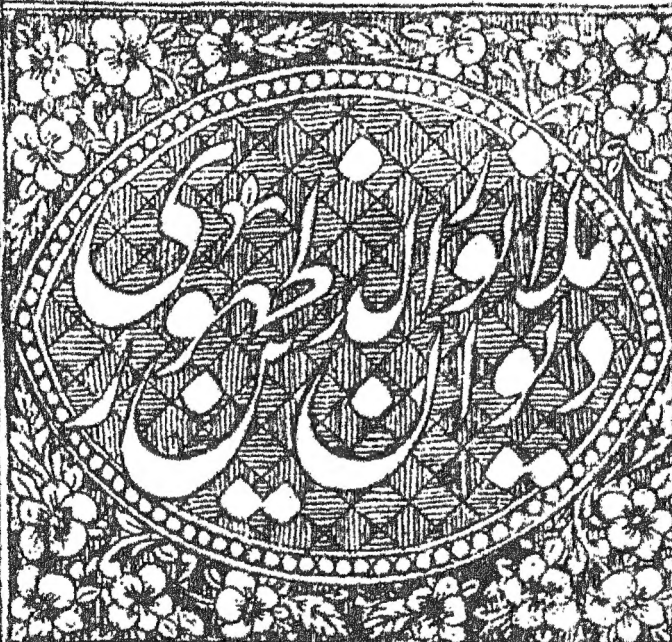 دیوان
ملا نورالدین ظهوری